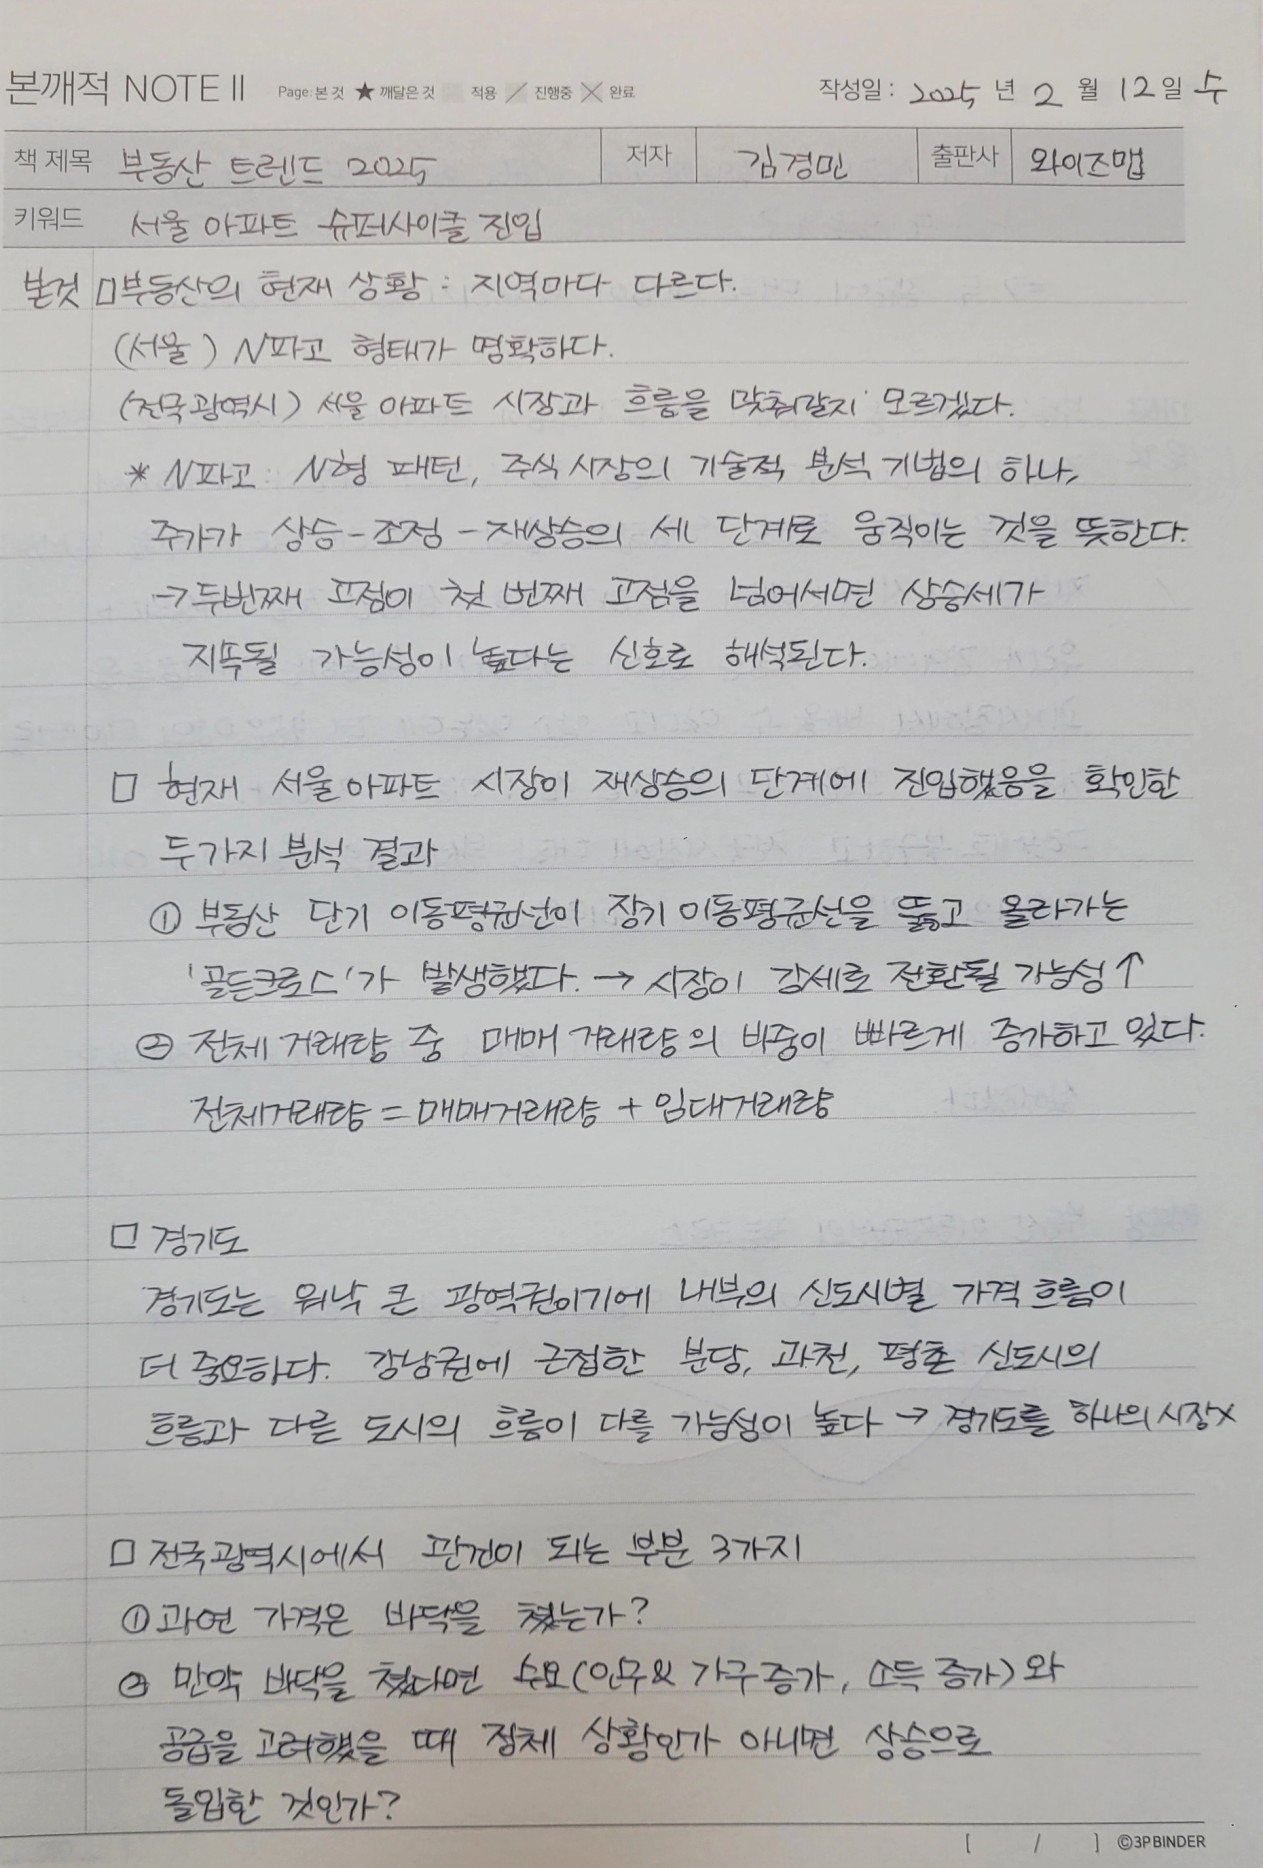 본깨적 NOTE II Page: 본 것 ★ 깨달은 것 적용 진행중 완료 작성일 : 2025 년 2 월 12 일 수
책 제목 부동산 트렌드 2025 저자 김경민 출판사 와이즈맵
키워드 서울 아파트 슈퍼사이클 진입
본것 □ 부동산의 현재 상황 : 지역마다 다르다.
(서울) N파고 형태가 명확하다.
(전국광역시) 서울 아파트 시장과 흐름을 맞춰갈지 모르겠다.
* N파고: N형 패턴, 주식시장의 기술적 분석 기법의 하나,
주가가 상승-조정-재상승의 세 단계로 움직이는 것을 뜻한다.
→ 두번째 고점이 첫 번째 고점을 넘어서면 상승세가
지속될 가능성이 높다는 신호로 해석된다.
□ 현재 서울아파트 시장이 재상승의 단계에 진입했음을 확인한
두가지 분석 결과
① 부동산 단기 이동평균선이 장기 이동평균선을 뚫고 올라가는
'골든크로스'가 발생했다. → 시장이 강세로 전환될 가능성↑
② 전체 거래량 중 매매 거래량의 비중이 빠르게 증가하고 있다.
전체거래량 = 매매거래량 + 임대거래량
□ 경기도
경기도는 워낙 큰 광역권이기에 내부의 신도시별 가격 흐름이
더 중요하다. 강남권에 근접한 분당, 과천, 평촌 신도시의
흐름과 다른 도시의 흐름이 다를 가능성이 높다 → 경기도를 하나의 시장X
□ 전국광역시에서 관건이 되는 부분 3가지
① 과연 가격은 바닥을 쳤는가?
② 만약 바닥을 쳤다면 수요(인구& 가구 증가, 소득 증가)와
공급을 고려했을 때 정체 상황인가 아니면 상승으로
돌입한 것인가?
[ / ] ©3P BINDER